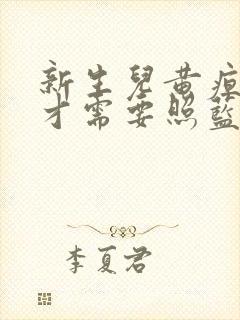 新生兒黃疸
才需要照藍
李夏君